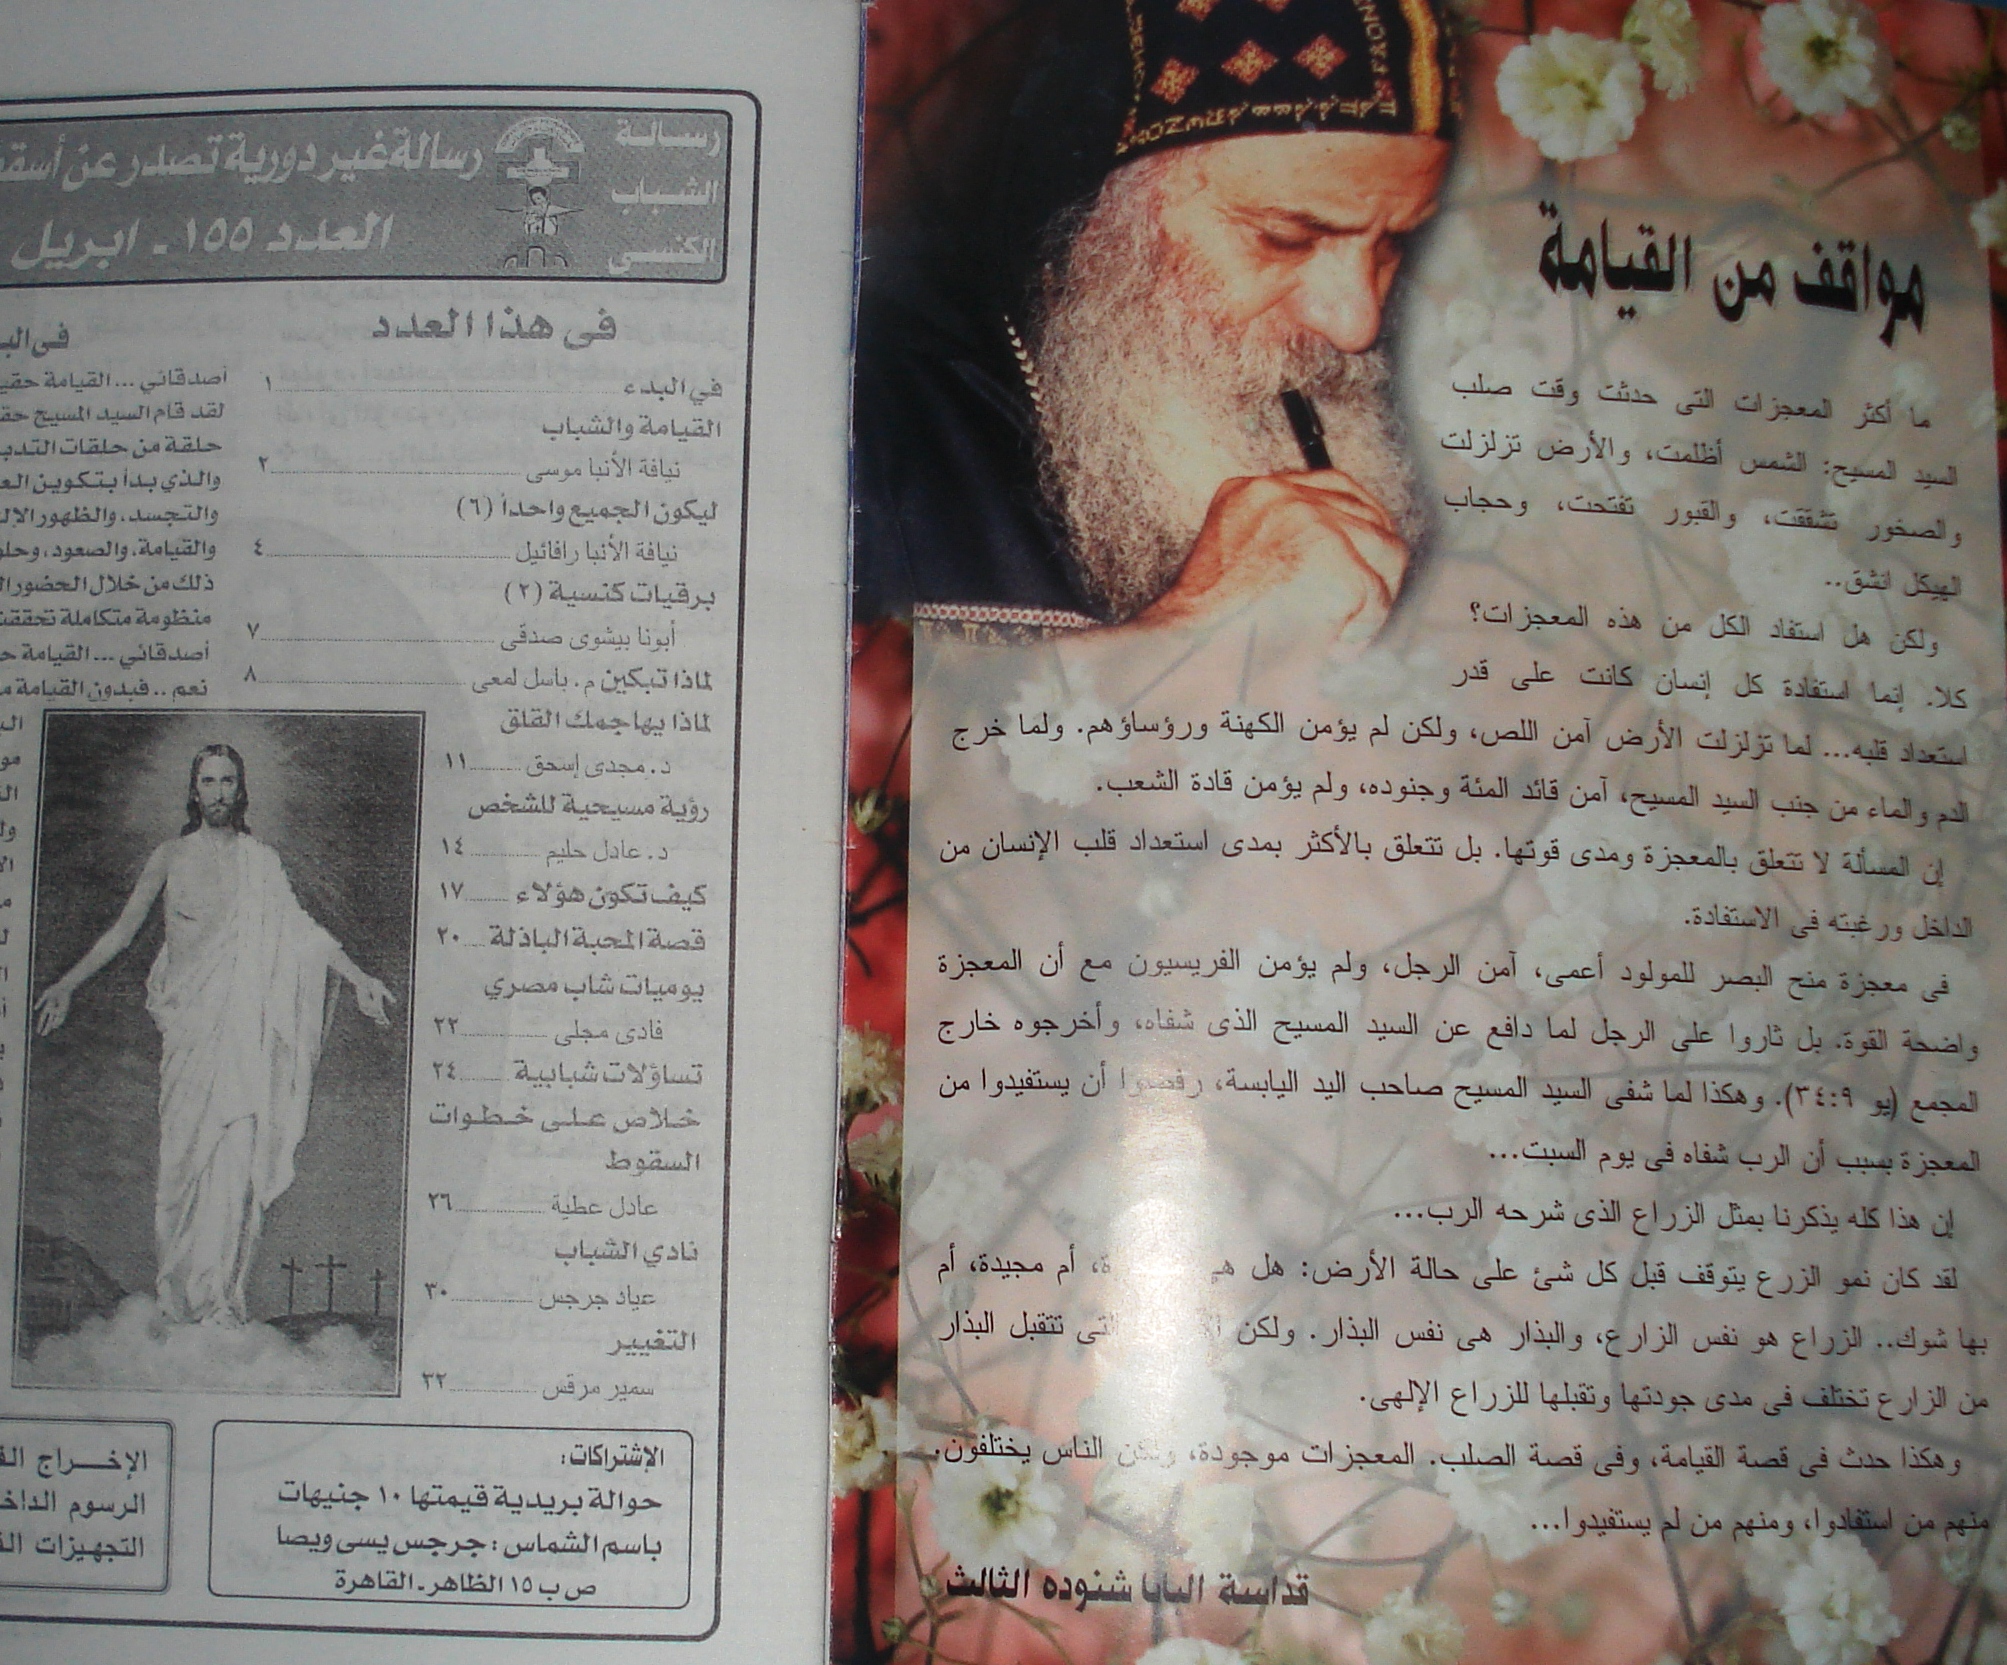 مواقف من القيامة
ما أكثر المعجزات التى حدثت وقت صلب
السيد المسيح: الشمس أظلمت، والأرض تزلزلت
والصخور تشققت، والقبور تفتحت، وحجاب
الهيكل انشق..
ولكن هل استفاد الكل من هذه المعجزات؟
كلا. إنما استفادة كل إنسان كانت على قدر
استعداد قلبه... لما تزلزلت الأرض آمن اللص، ولكن لم يؤمن الكهنة ورؤساؤهم. ولما خرج
الدم والماء من جنب السيد المسيح، آمن قائد المئة وجنوده، ولم يؤمن قادة الشعب.
إن المسألة لا تتعلق بالمعجزة ومدى قوتها. بل تتعلق بالأكثر بمدى استعداد قلب الإنسان من
الداخل ورغبته فى الاستفادة.
فى معجزة منح البصر للمولود أعمى، آمن الرجل، ولم يؤمن الفريسيون مع أن المعجزة
واضحة القوة. بل ثاروا على الرجل لما دافع عن السيد المسيح الذى شفاه، وأخرجوه خارج
المجمع (يو ٣٤:٩). وهكذا لما شفى السيد المسيح صاحب اليد اليابسة، رفضوا أن يستفيدوا من
المعجزة بسبب أن الرب شفاه فى يوم السبت...
إن هذا كله يذكرنا بمثل الزراع الذى شرحه الرب...
لقد كان نمو الزرع يتوقف قبل كل شئ على حالة الأرض: هل أم مجيدة، أم
بها شوك.. الزراع هو نفس الزارع، والبذار هى نفس البذار. ولكن التى تتقبل البذار
من الزارع تختلف فى مدى جودتها وتقبلها للزراع الإلهى.
وهكذا حدث فى قصة القيامة، وفى قصة الصلب. المعجزات موجودة، ولكن الناس يختلفون.
منهم من استفادوا، ومنهم من لم يستفيدوا...
قداسة البابا شنوده الثالث
رسالة
الشباب
الكنسى
رسالة غير دورية تصدر عن
العدد ١٥٥ ـ ابريل
فى هذا العدد
في البدء ١
القيامة والشباب
نيافة الأنبا موسى ٢
ليكون الجميع واحداً (٦)
نيافة الأنبا رافائيل ٤
برقيات كنسية (٢)
أبونا بيشوى صدقى ٧
لماذا تبكين م. باسل لمعى ٨
لماذا يهاجمك القلق
د. مجدى إسحق ١١
رؤية مسيحية للشخص
د. عادل حليم ١٤
كيف تكون هؤلاء ١٧
قصة المحبة الباذلة ٢٠
يوميات شاب مصري
فادى مجلى ٢٢
تساؤلات شبابية ٢٤
خلاص على خطوات
السقوط
عادل عطية ٢٦
نادي الشباب
عياد جرجس ٣٠
التغيير
سمير مرقس ٣٢
أصدقائي ... القيامة
لقد قام السيد المسيح
حلقة من حلقات
والذي بدأ بتكوين
والتجسد، والظهور
والقيامة، والصعود،
ذلك من خلال الحضور
منظومة متكاملة
أصدقائي ... القيامة
نعم .. فبدون القيامة
الإشتراكات:
حوالة بريدية قيمتها ١٠ جنيهات
باسم الشماس: جرجس يسى ويصا
ص ب ١٥ الظاهر - القاهرة
الإخراج
الرسوم
التجهيزات